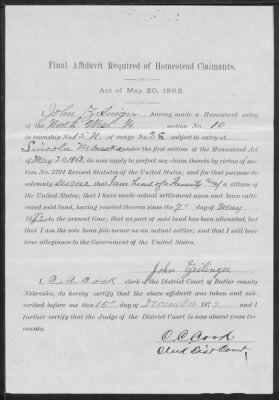 Final Affidavit Required of Homestead Claimants.
Act of May 20, 1862.
I, John Zeilinger having made a Homestead entry
of the North West ¼ section No. 10
in township No. 15 N. of range No. 2 E subject to entry at
Lincoln Nebraska under the first section of the Homestead Act
of May 20 1862, do now apply to perfect my claim thereto by virtue of sec-
tion No. 2291 Revised Statutes of the United States; and for that purpose do
solemnly swear that I am head of a Family & a citizen of
the United States; that I have made actual settlement upon and have culti-
vated said land, having resided thereon since the 7th day of
187 to the present time; that no part of said land has been alienated, but
that I am the sole bona fide owner as an actual settler; and that I will bear
true allegiance to the Government of the United States.
John Zeilinger
I, O. C. Cook clerk of the District Court of Butler county
Nebraska, do hereby certify that the above affidavit was taken and sub-
scribed before me this 15th day of December 1877 and I
further certify that the Judge of the District Court is now absent from the
county.
O. C. Cook
Clerk Dist Court